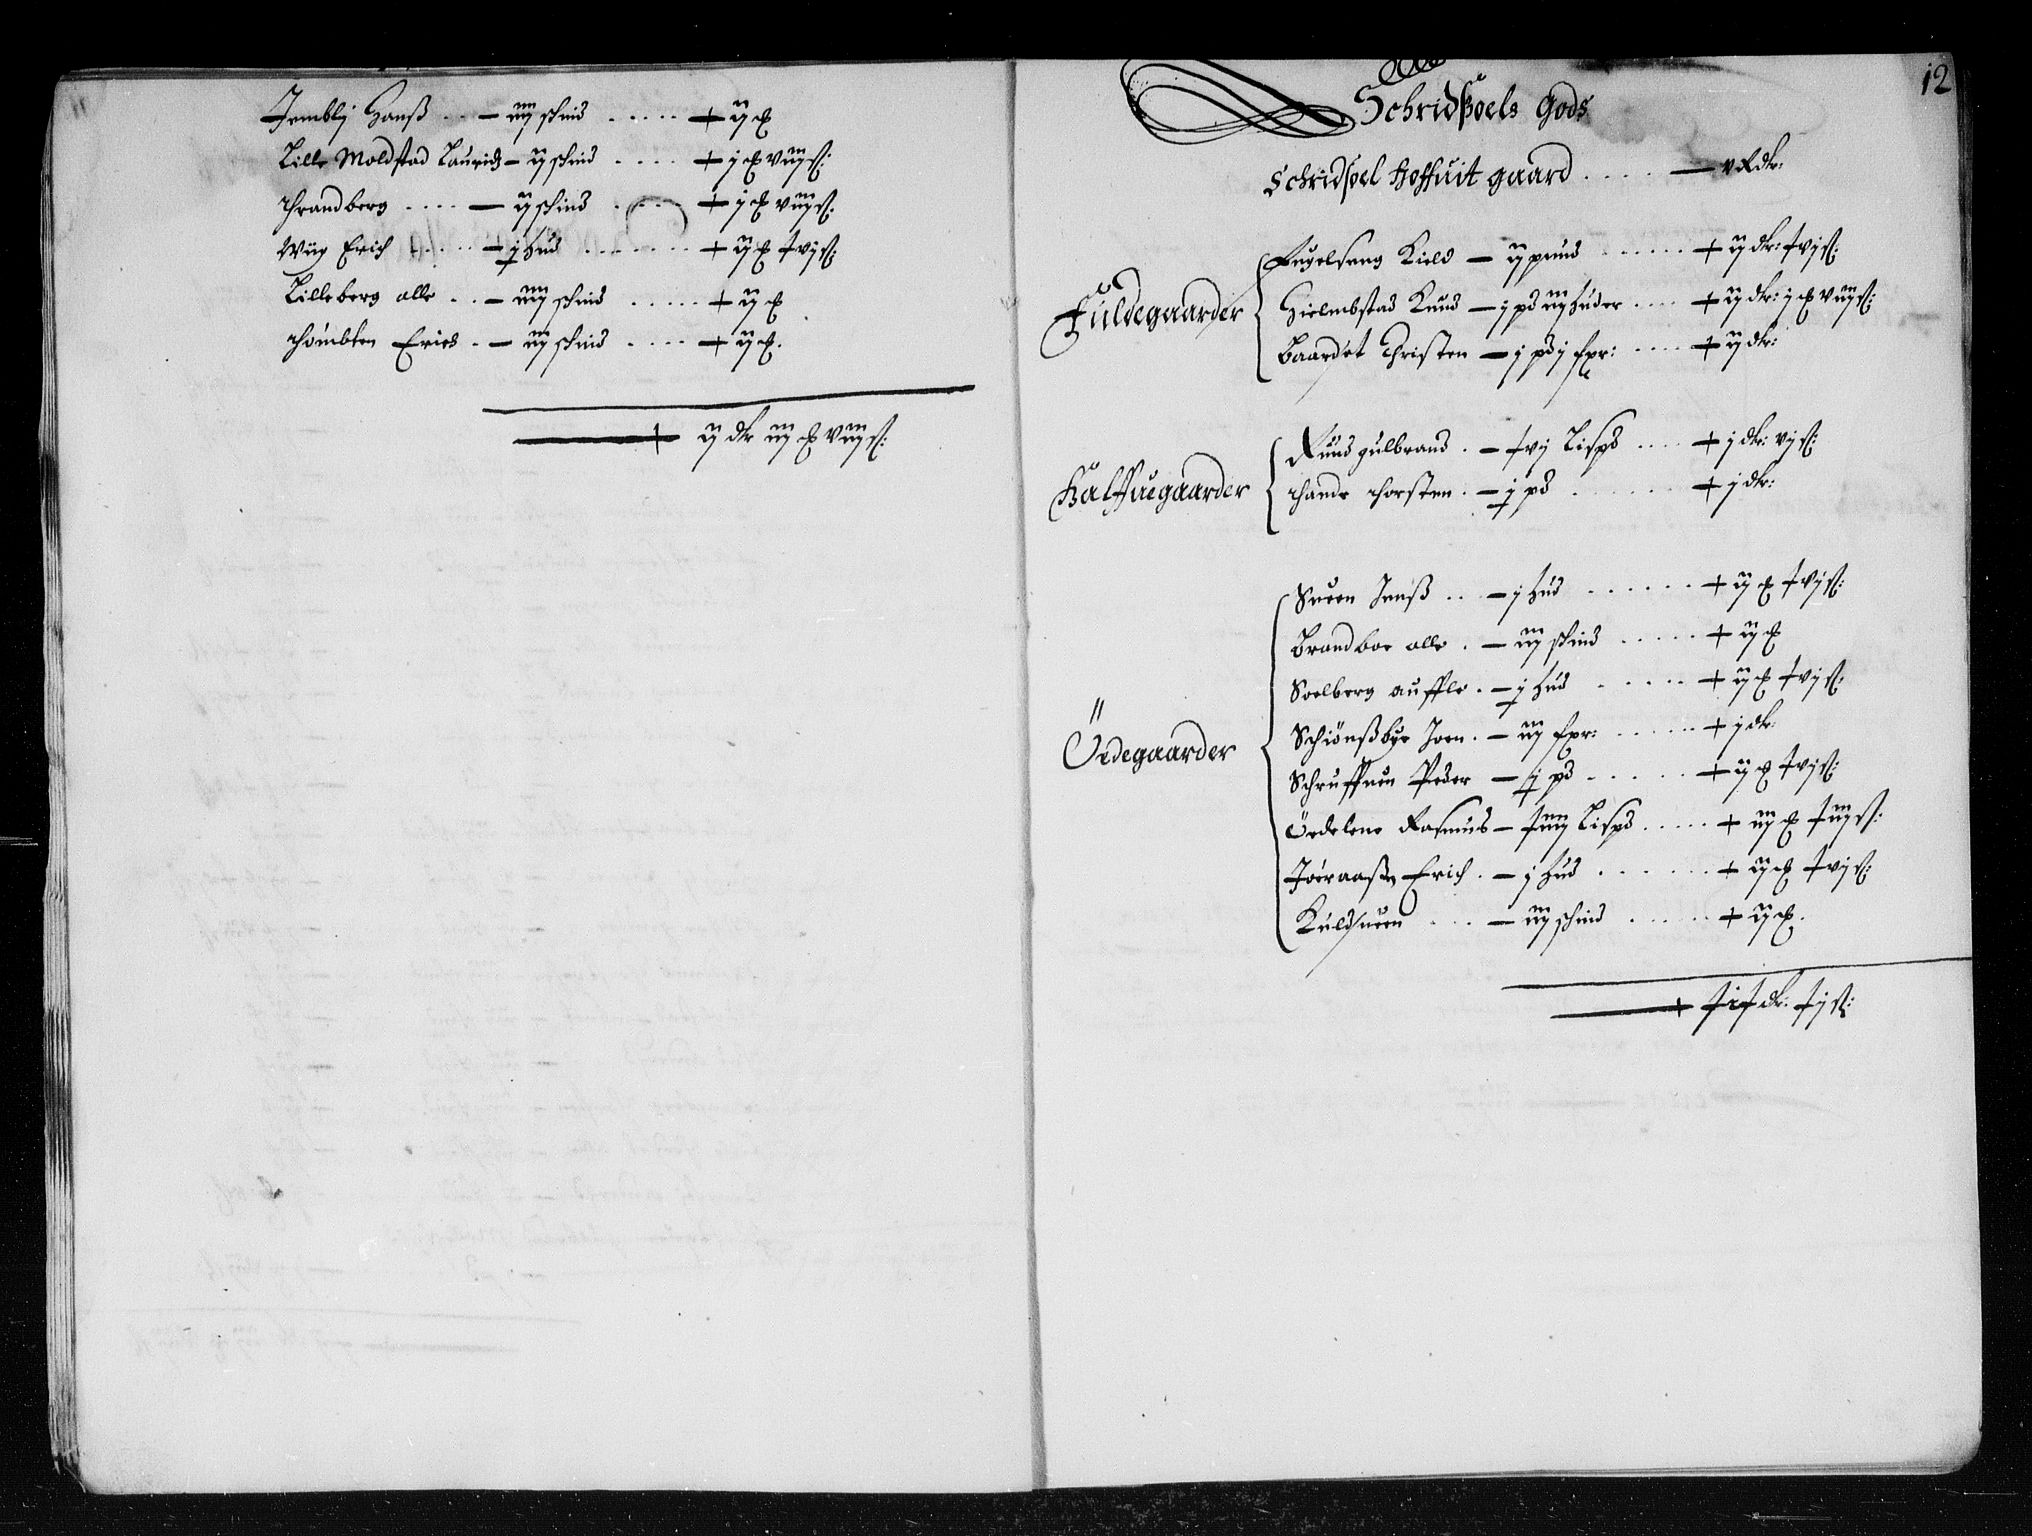 Jembly Hanß . . — iiij schind . . . . . + ij ₰
Lille Moldstad Lauridz — ij schind . . . . + j ₰ viij ß:
Thrandberg . . . . — ij schind . . . . + j ₰ viij ß:
Wiig Erich . . . . — j hud . . . . . + ij ₰ xvj ß:
Lilleberg alle . . — iiij schind . . . . . + ij ₰
Thombten Erich . — iij schind . . . . + ij ₰.
+ ij dlr iij ₰ viij ß:
12
Schridßoels Gods
Schridsoel Hoffuit gaard . . . . — v Rdlr:
Fuldegaarder
Fugelsang Kield — ij pund . . . . . + ij dlr: xvj ß:
Hielmbstad Knud — j pd iij huder . . . . + ij dlr: j ₰ viij ß:
Baardet Christen — j pd j fxr: . . . . + ij dlr:
Halffuegaarder
Ruud gulbrand . — xvj Lispd . . . . + j dlr: vj ß:
Thande Thorsten . — j pd . . . . . . + j dlr:
Ödegaarder
Sueen Jenß . . — j hud . . . . . . + ij ₰ xvj ß:
Brandboe alle . — iij schind . . . . . + ij ₰
Soelberg auffle . — j hud . . . . . + ij ₰ xvj ß:
Schiönßbye Joen . — iij fxr: . . . . . + j dlr:
Schruffuen Peder — j pd . . . . . + ij ₰ xvj ß:
Ödelene Rasmus — xiiij Lispd . . . . . + iij ₰ xiij ß:
Joeraaßen Erich . — j hud . . . . . . + ij ₰ xvj ß:
Kuldsueen . . . — iij schind . . . . . + ij ₰.
+ xix dlr: xj ß: